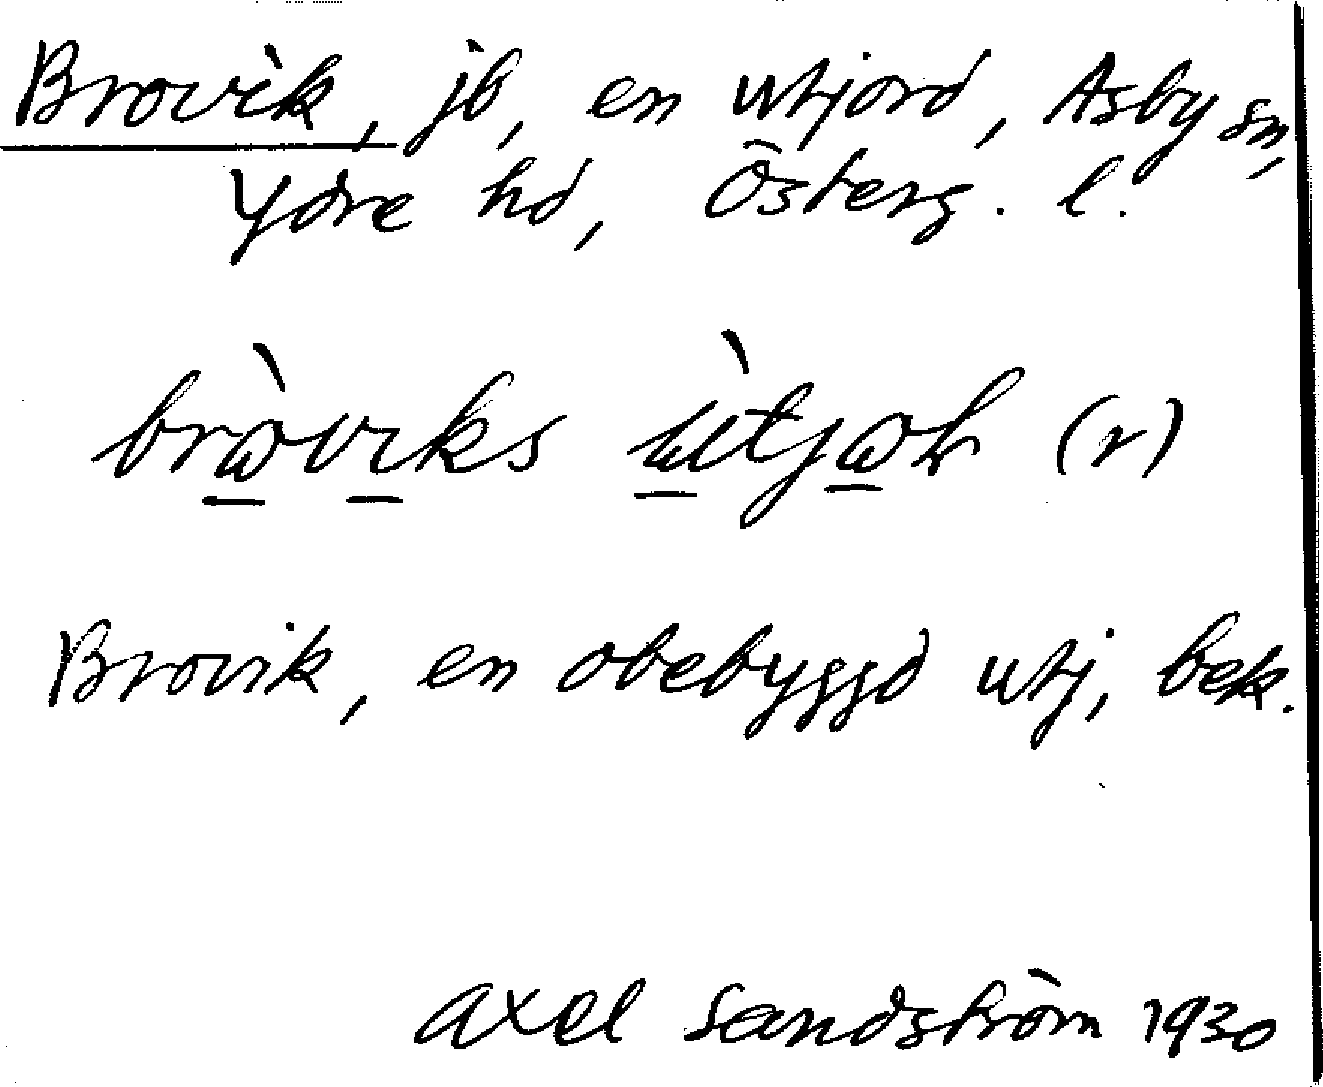 Brovik, jb, en utjord, Asby sn,
Ydre hd, Österg. l.
brὼvıks ùtjωɦ (r)
Brovik, en obebyggd utj, bek.
Axel Sandström 1930